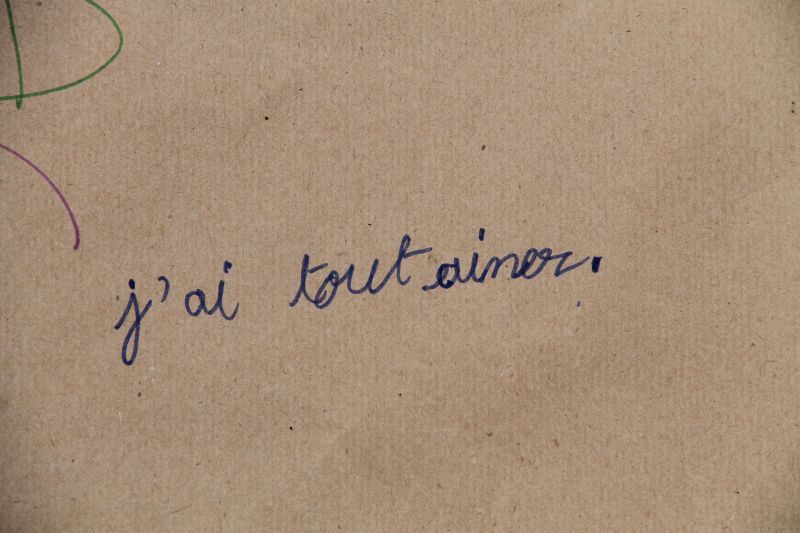 j'ai tout ainer.